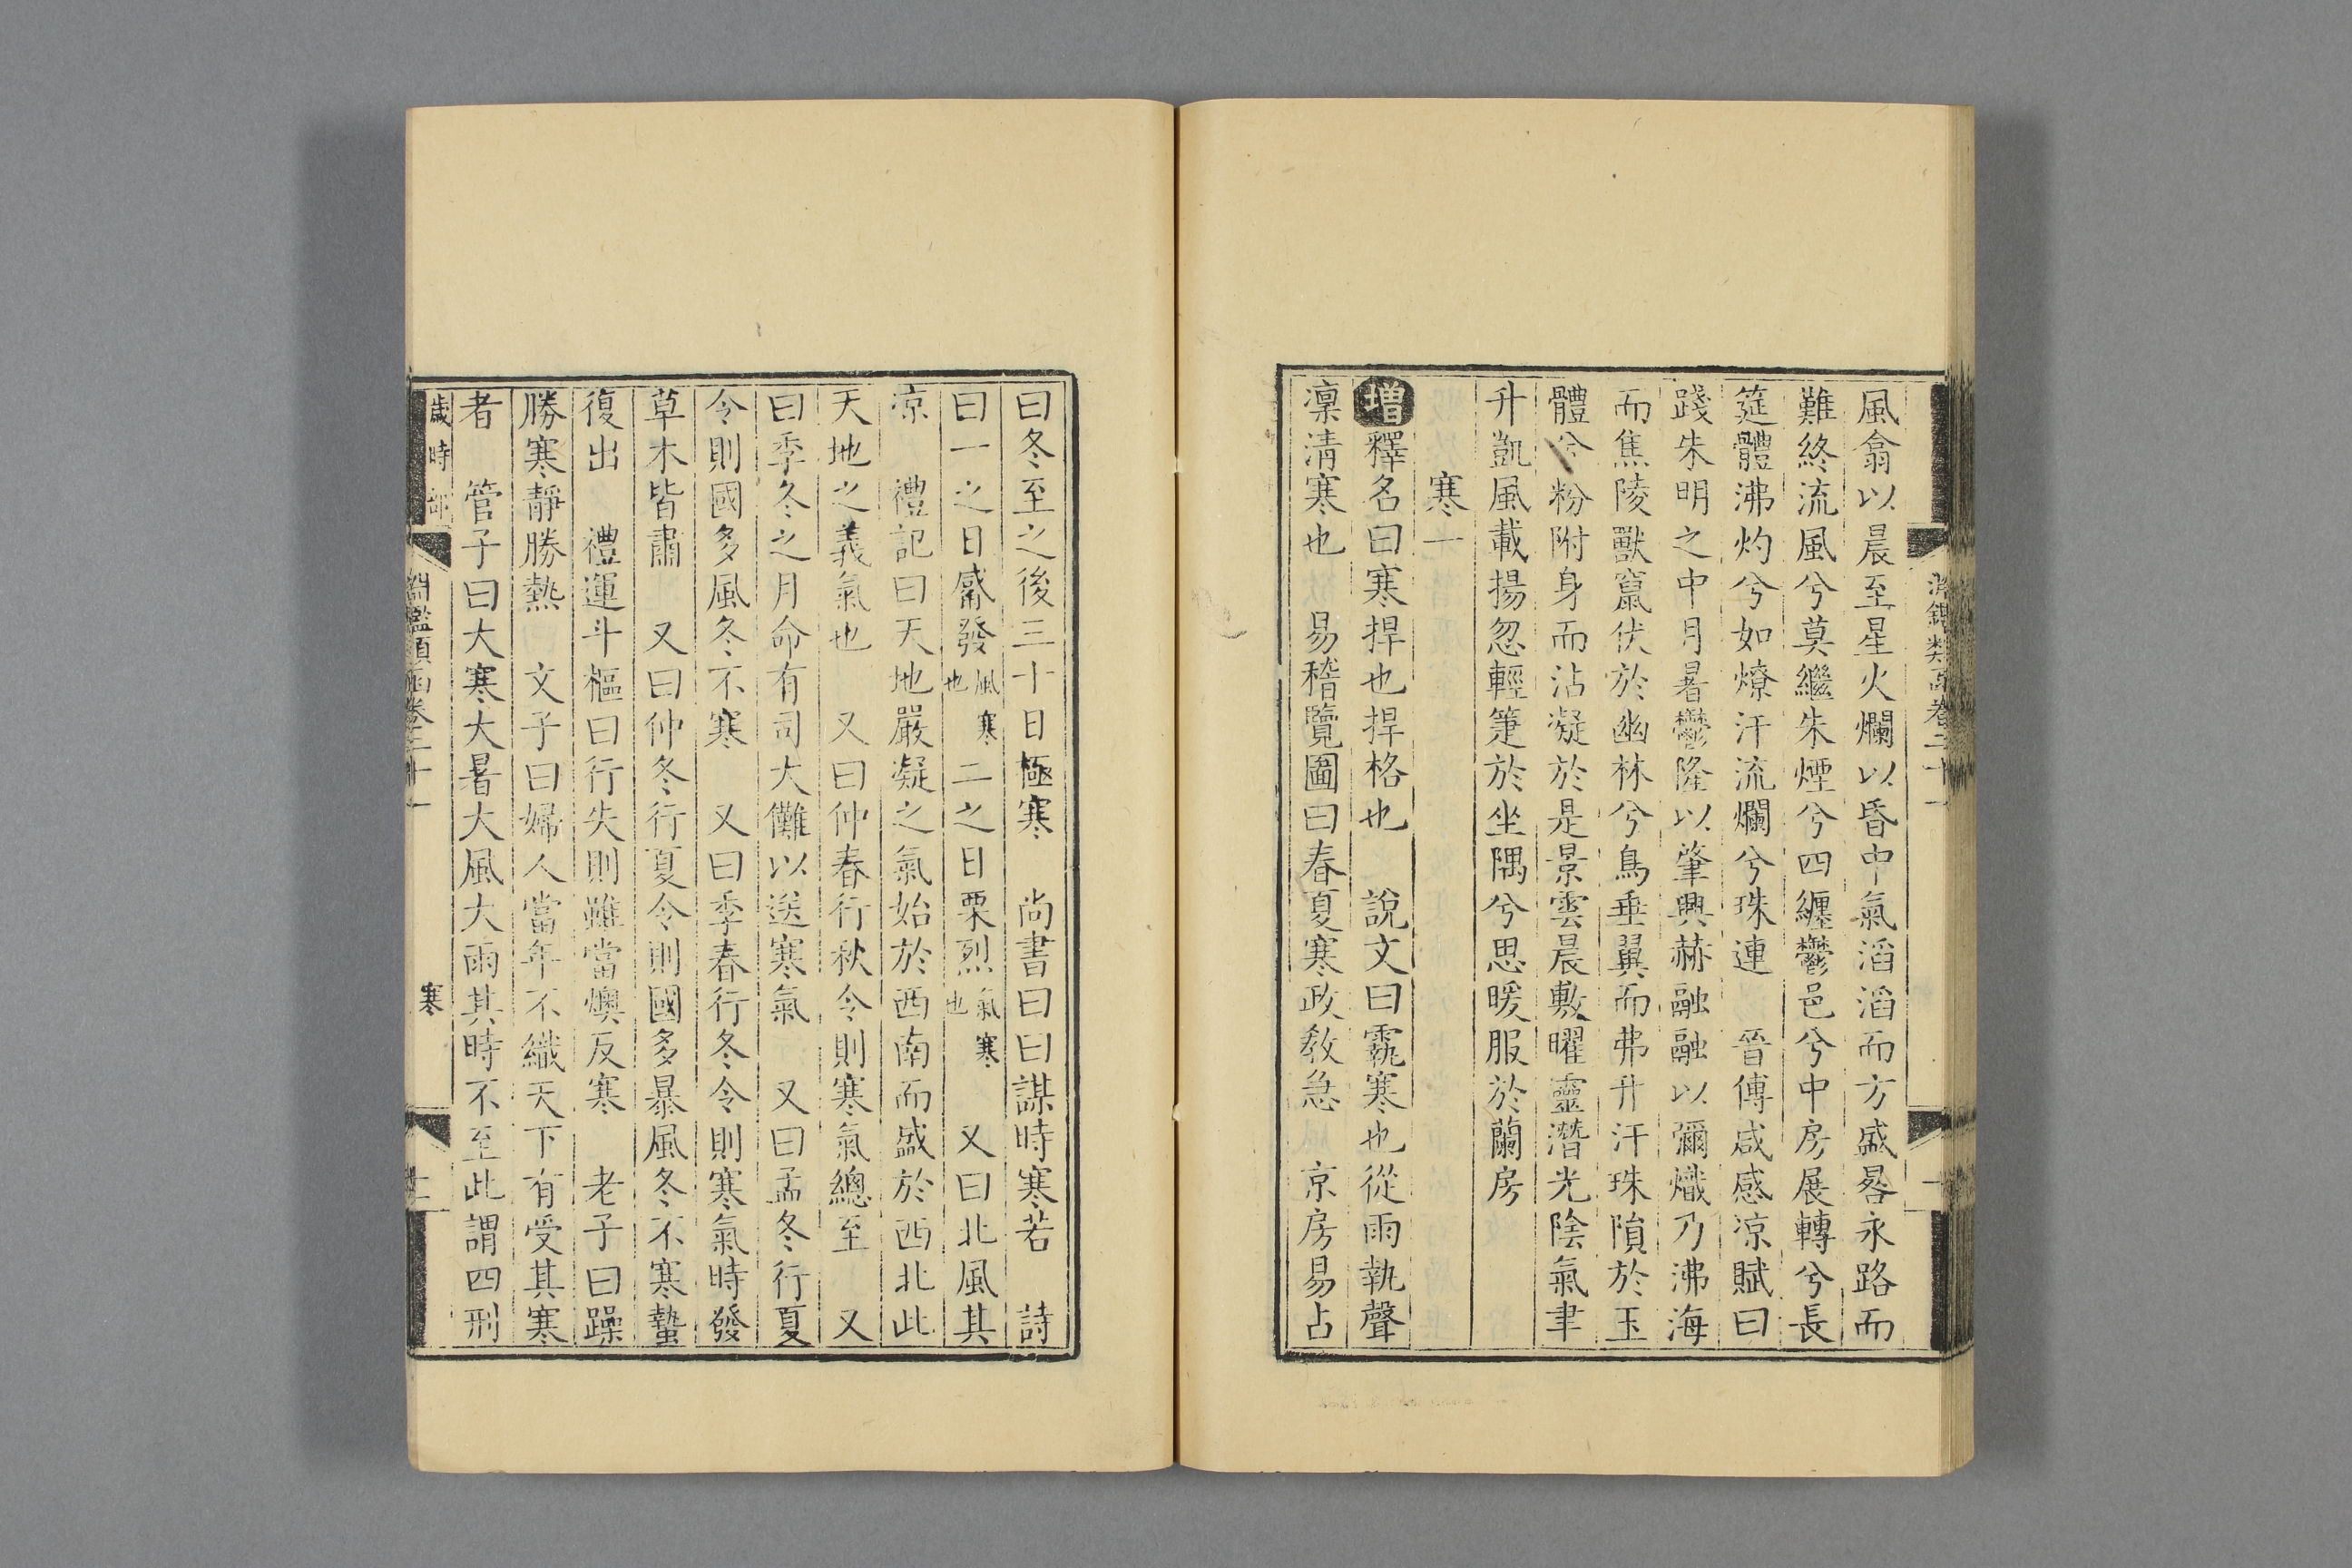 風翕以晨至星火爛以昏中氣滔滔而方盛晷永路而
難終流風兮莫繼朱煙兮四纏鬱邑兮中房展轉兮長
筵體沸灼兮如燎汗流爛兮珠連　晉傅咸感凉賦曰
踐朱明之中月暑鬱隆以肇興赫融融以彌熾乃沸海
而焦陵獸窟伏於幽林兮鳥垂翼而弗升汗珠隕於玉
體兮粉附身而沾凝於是景雲晨敷曜靈潛光陰氣聿
升凱風載揚忽輕箑於坐隅兮思暖服於蘭房
寒一
增釋名曰寒捍也捍格也　說文曰霵寒也從雨執聲
凛凊寒也　易稽覽圖曰春夏寒政教急　京房易占
曰冬至之後三十日極寒　尚書曰曰謀時寒若　詩
曰一之日觱發風寒也二之日栗烈氣寒也　又曰北風其
凉　禮記曰天地嚴凝之氣始於西南而盛於西北此
天地之義氣也　又曰仲春行秋令則寒氣總至　又
曰季冬之月命有司大儺以送寒氣　又曰孟冬行夏
令則國多風冬不寒　又曰季春行冬令則寒氣時發
草木皆肅　又曰仲冬行夏令則國多暴風冬不寒蟄
復出　禮運斗樞曰行失則雖當燠反寒　老子曰躁
勝寒靜勝熱　文子曰婦人當年不織天下有受其寒
者　管子曰大寒大暑大風大雨其時不至此謂四刑
歲時部　淵鑑類函卷二十一　寒